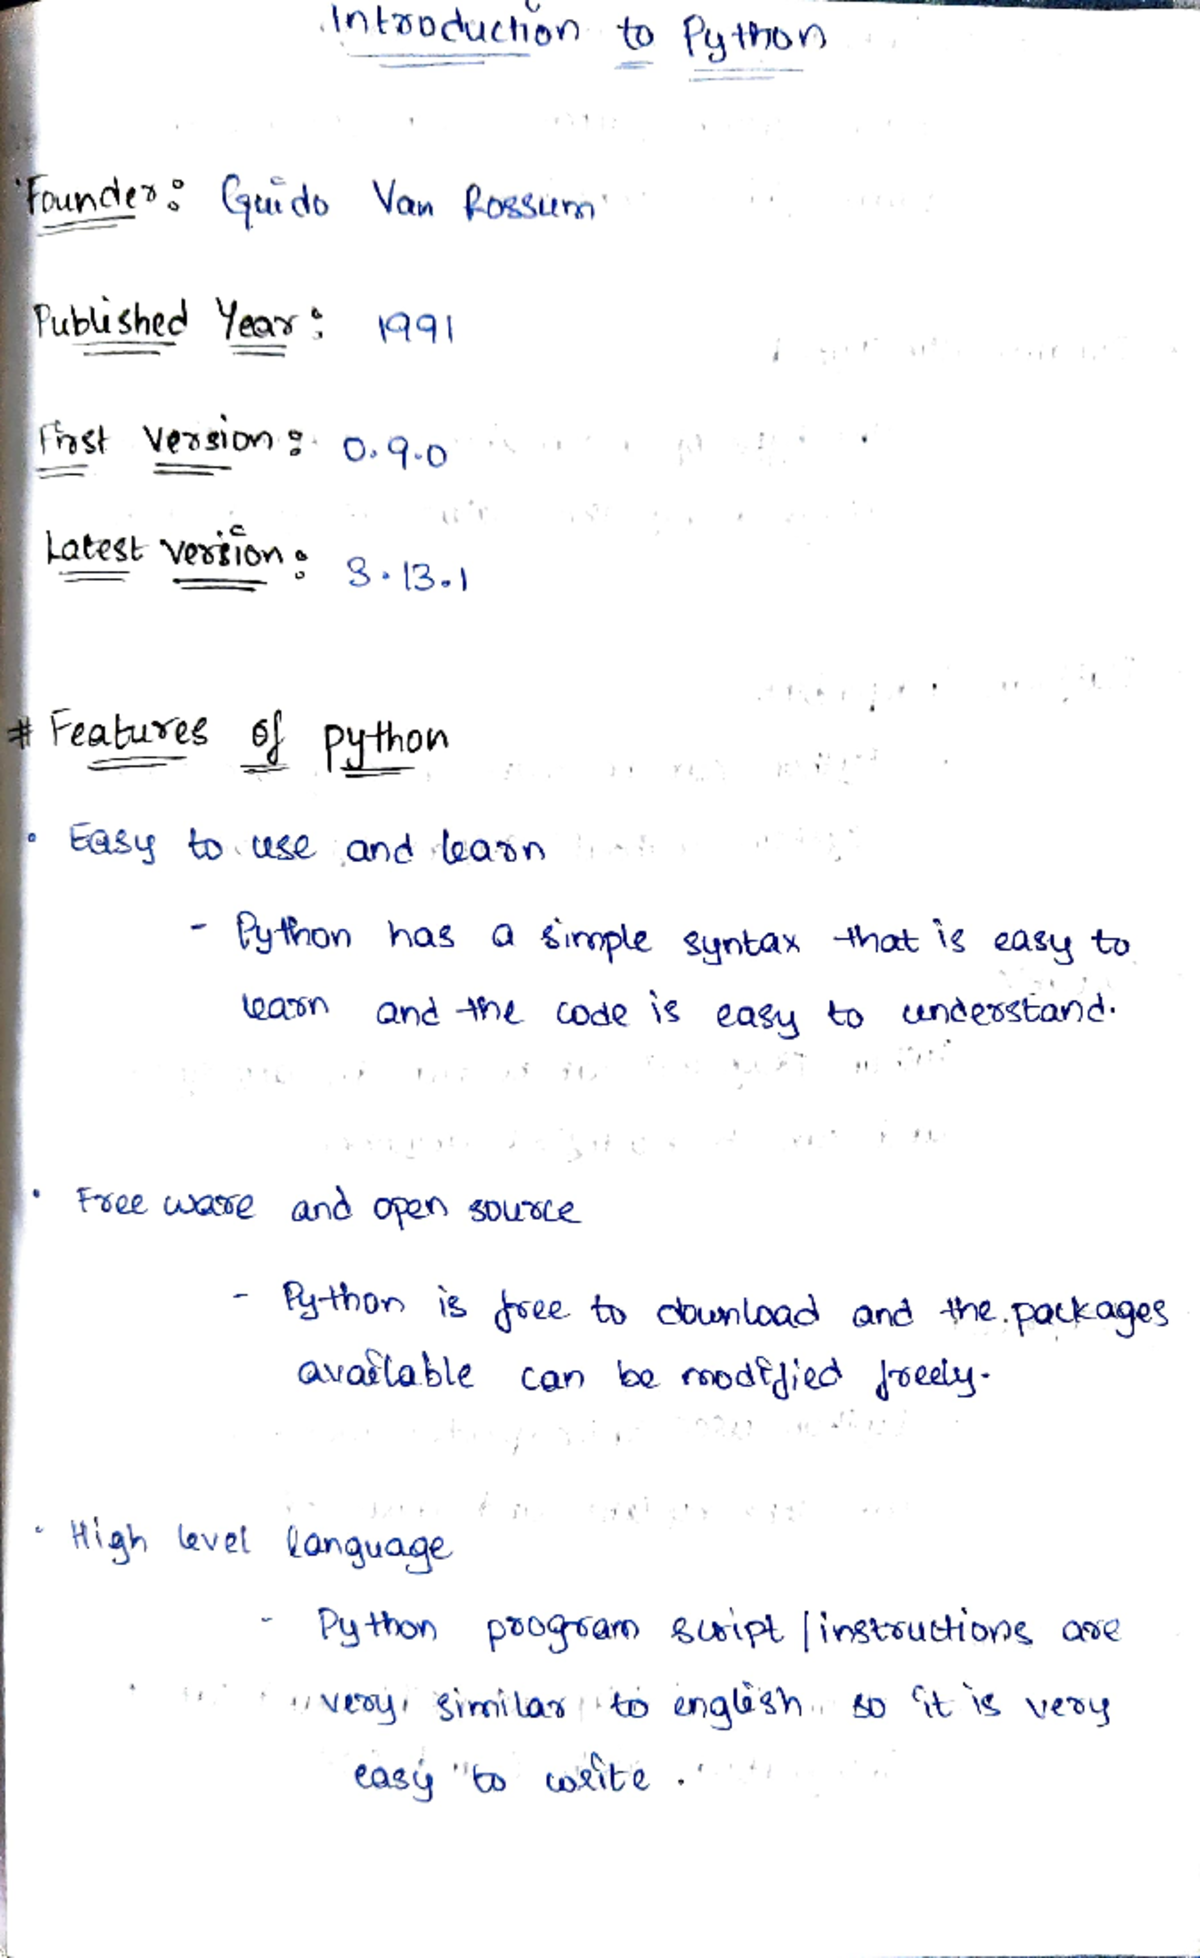 Introduction to Python
Founder: Guido Van Rossum
Published Year: 1991
First version: 0.9.0
Latest version: 3.13.1
# Features of python
• Easy to use and learn
- Python has a simple syntax that is easy to
learn and the code is easy to understand.
• Free ware and open source
- Python is free to download and the packages
available can be modified freely.
• High level language
- Python program script/instructions are
very similar to english so it is very
easy to write.